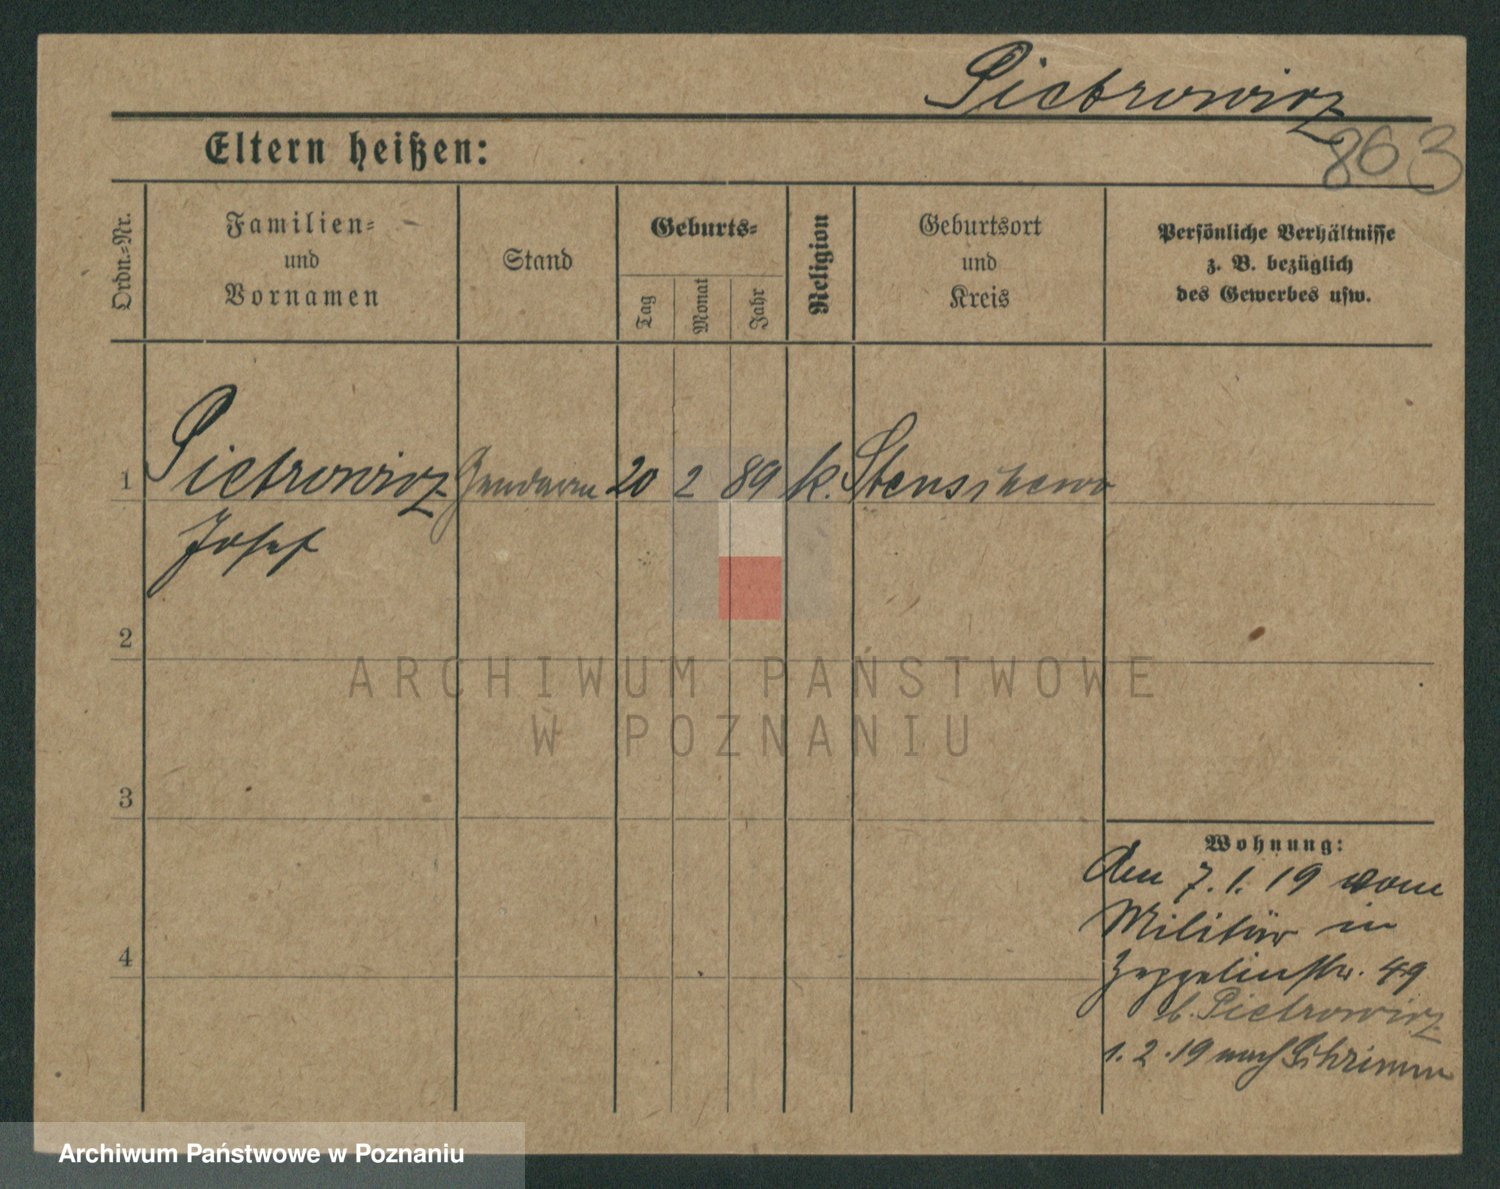 Pietrowicz
863
Eltern heißen:
Ordn.-Nr.
Familien-
und
Vornamen
Stand
Geburts-
Tag
Monat
Jahr
Religion
Geburtsort
und
Kreis
Persönliche Verhältnisse
z. B. bezüglich
des Gewerbes usw.
1 Pietrowicz 20 2 89 k.
Josef
2
ARCHIWUM PAŃSTWOWE
W POZNANIU
3
Wohnung:
Den 7.1.19 vom
Militär in
4
Zeppelinstr. 49
b. Pietrowicz
1.2.19 nach Schrimm
Archiwum Państwowe w Poznaniu